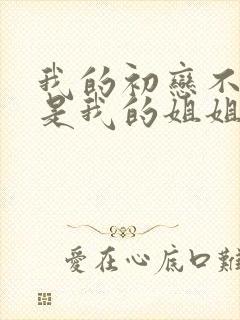 我的初戀不
是我的姐姐
愛在心底口難